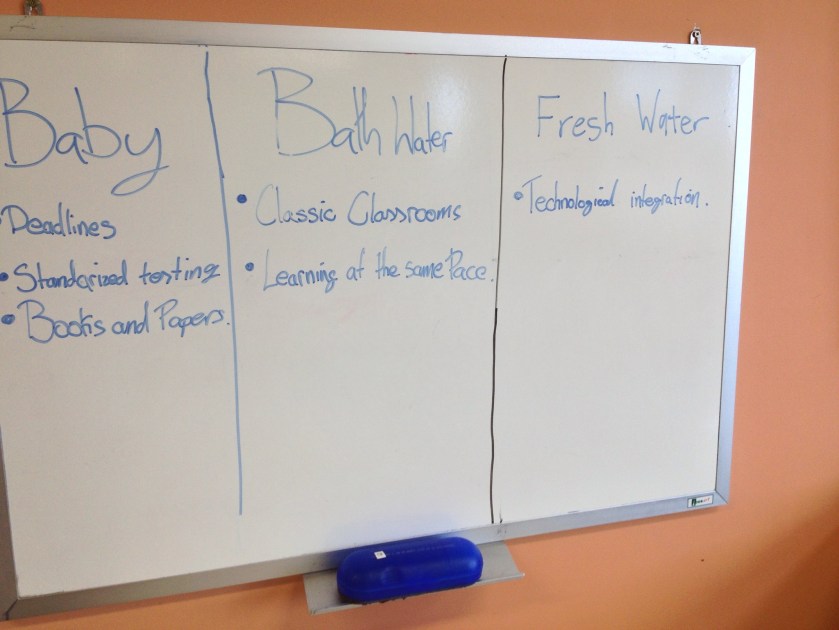 Baby
• Deadlines
• Standarized testing
• Books and Papers.
Bath Water
• Classic Classrooms
• Learning at the same Pace.
Fresh Water
• Technological integration.